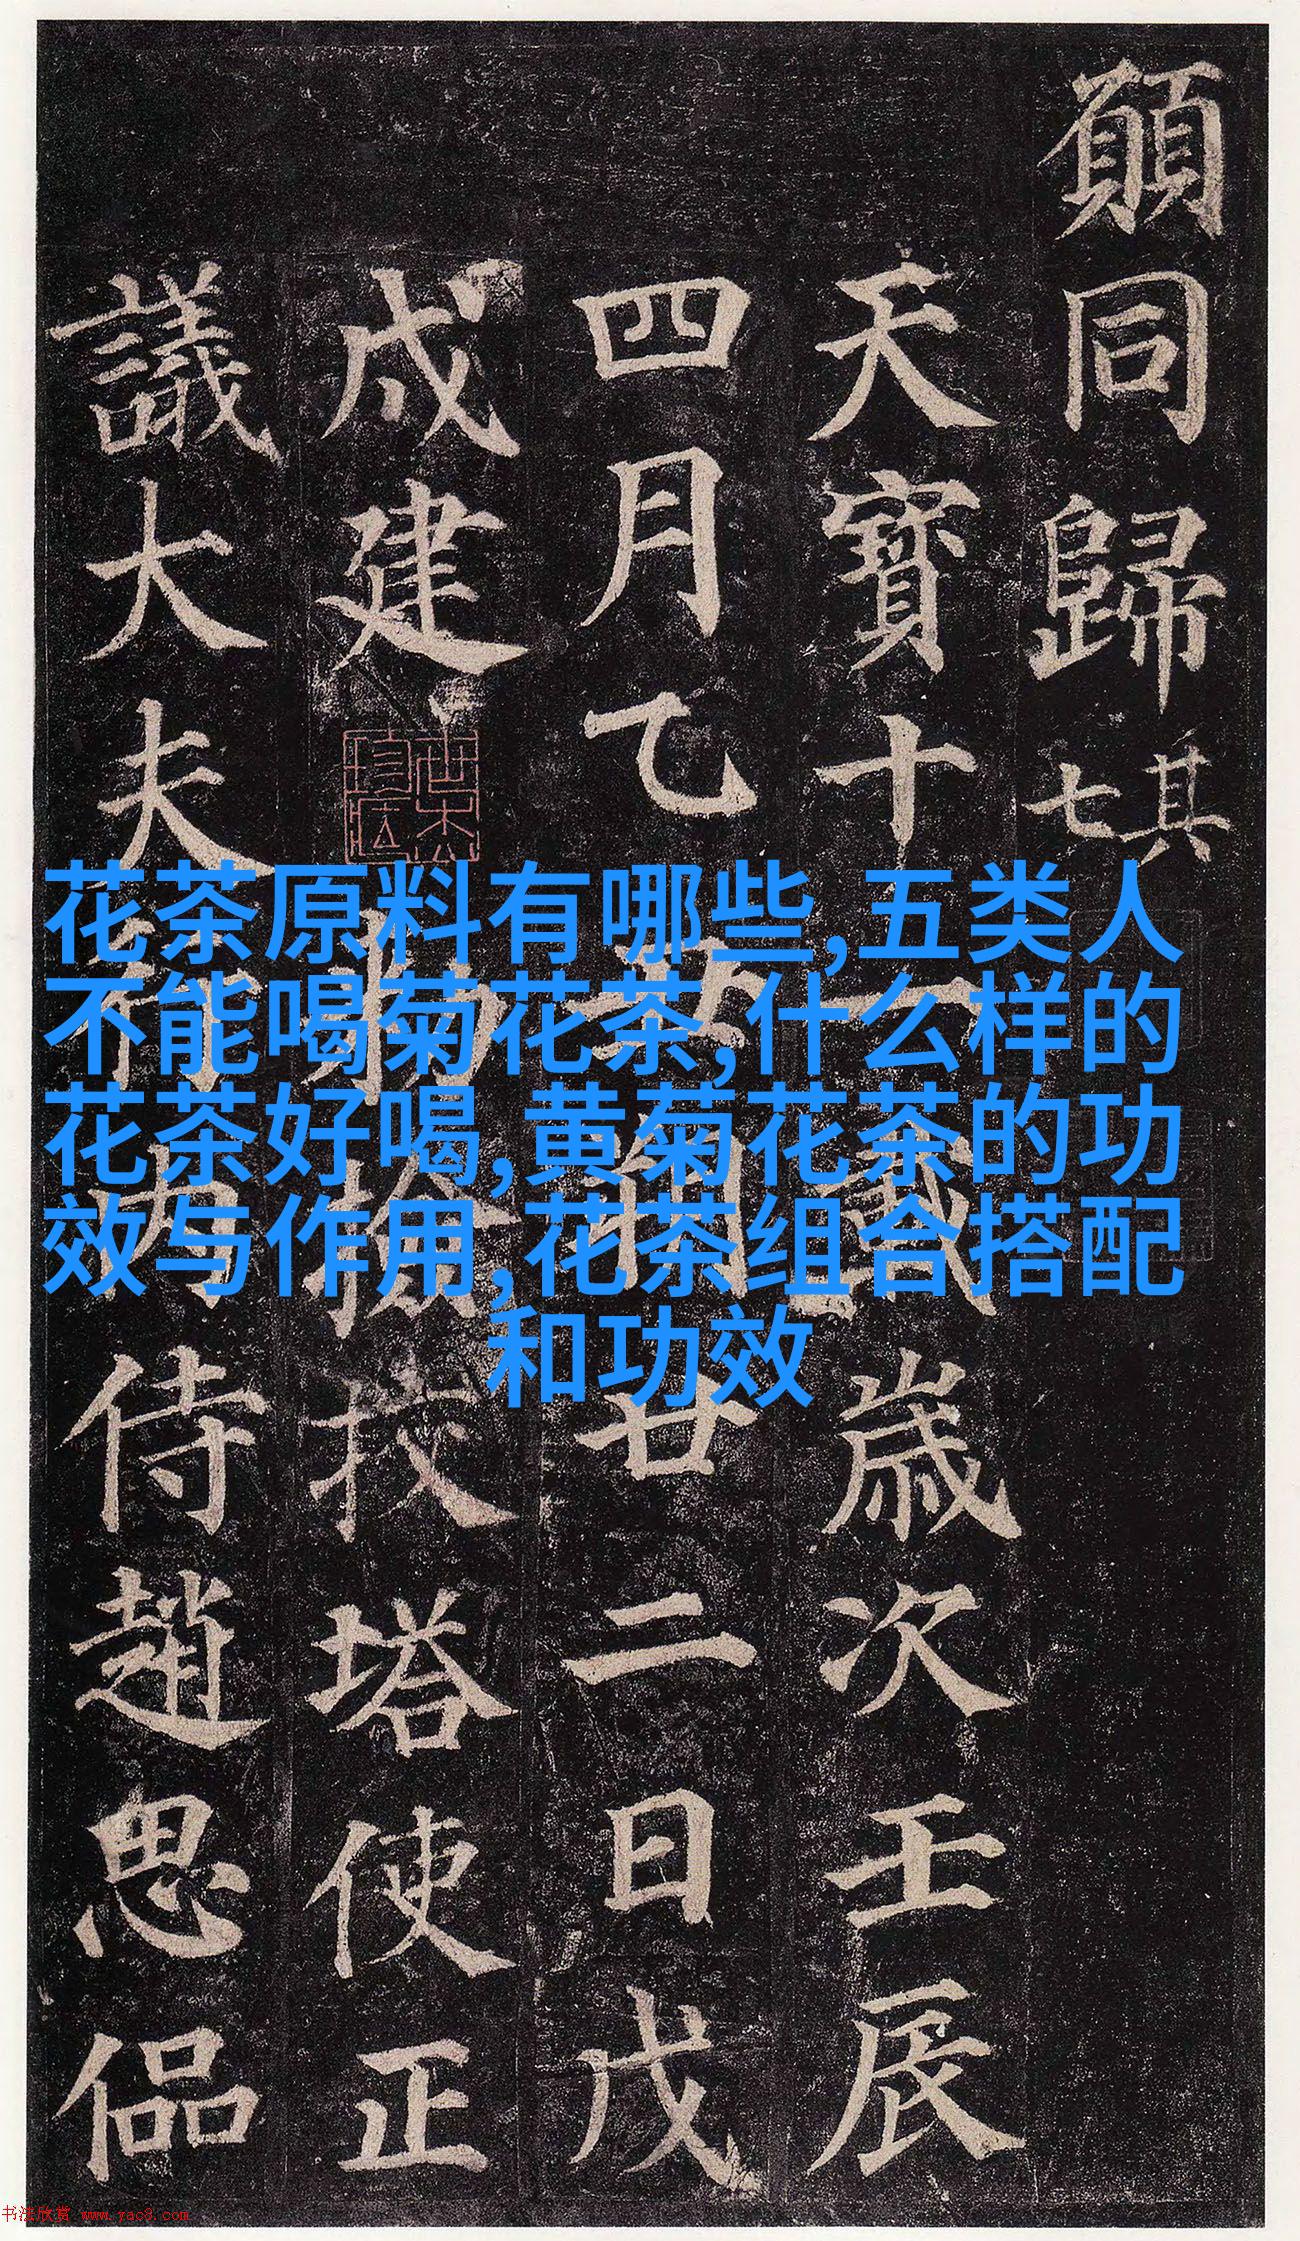 願同歸其七
天寶十一載歲次壬辰
四月乙丑朔廿二日戊
戌建勑檢挍塔使正
議大夫行內侍趙思偘
花茶原料有哪些,五类人
不能喝菊花茶,什么样的
花茶好喝,黄菊花茶的功
效与作用,花茶组合搭配
和功效
书法欣赏 www.yac8.com